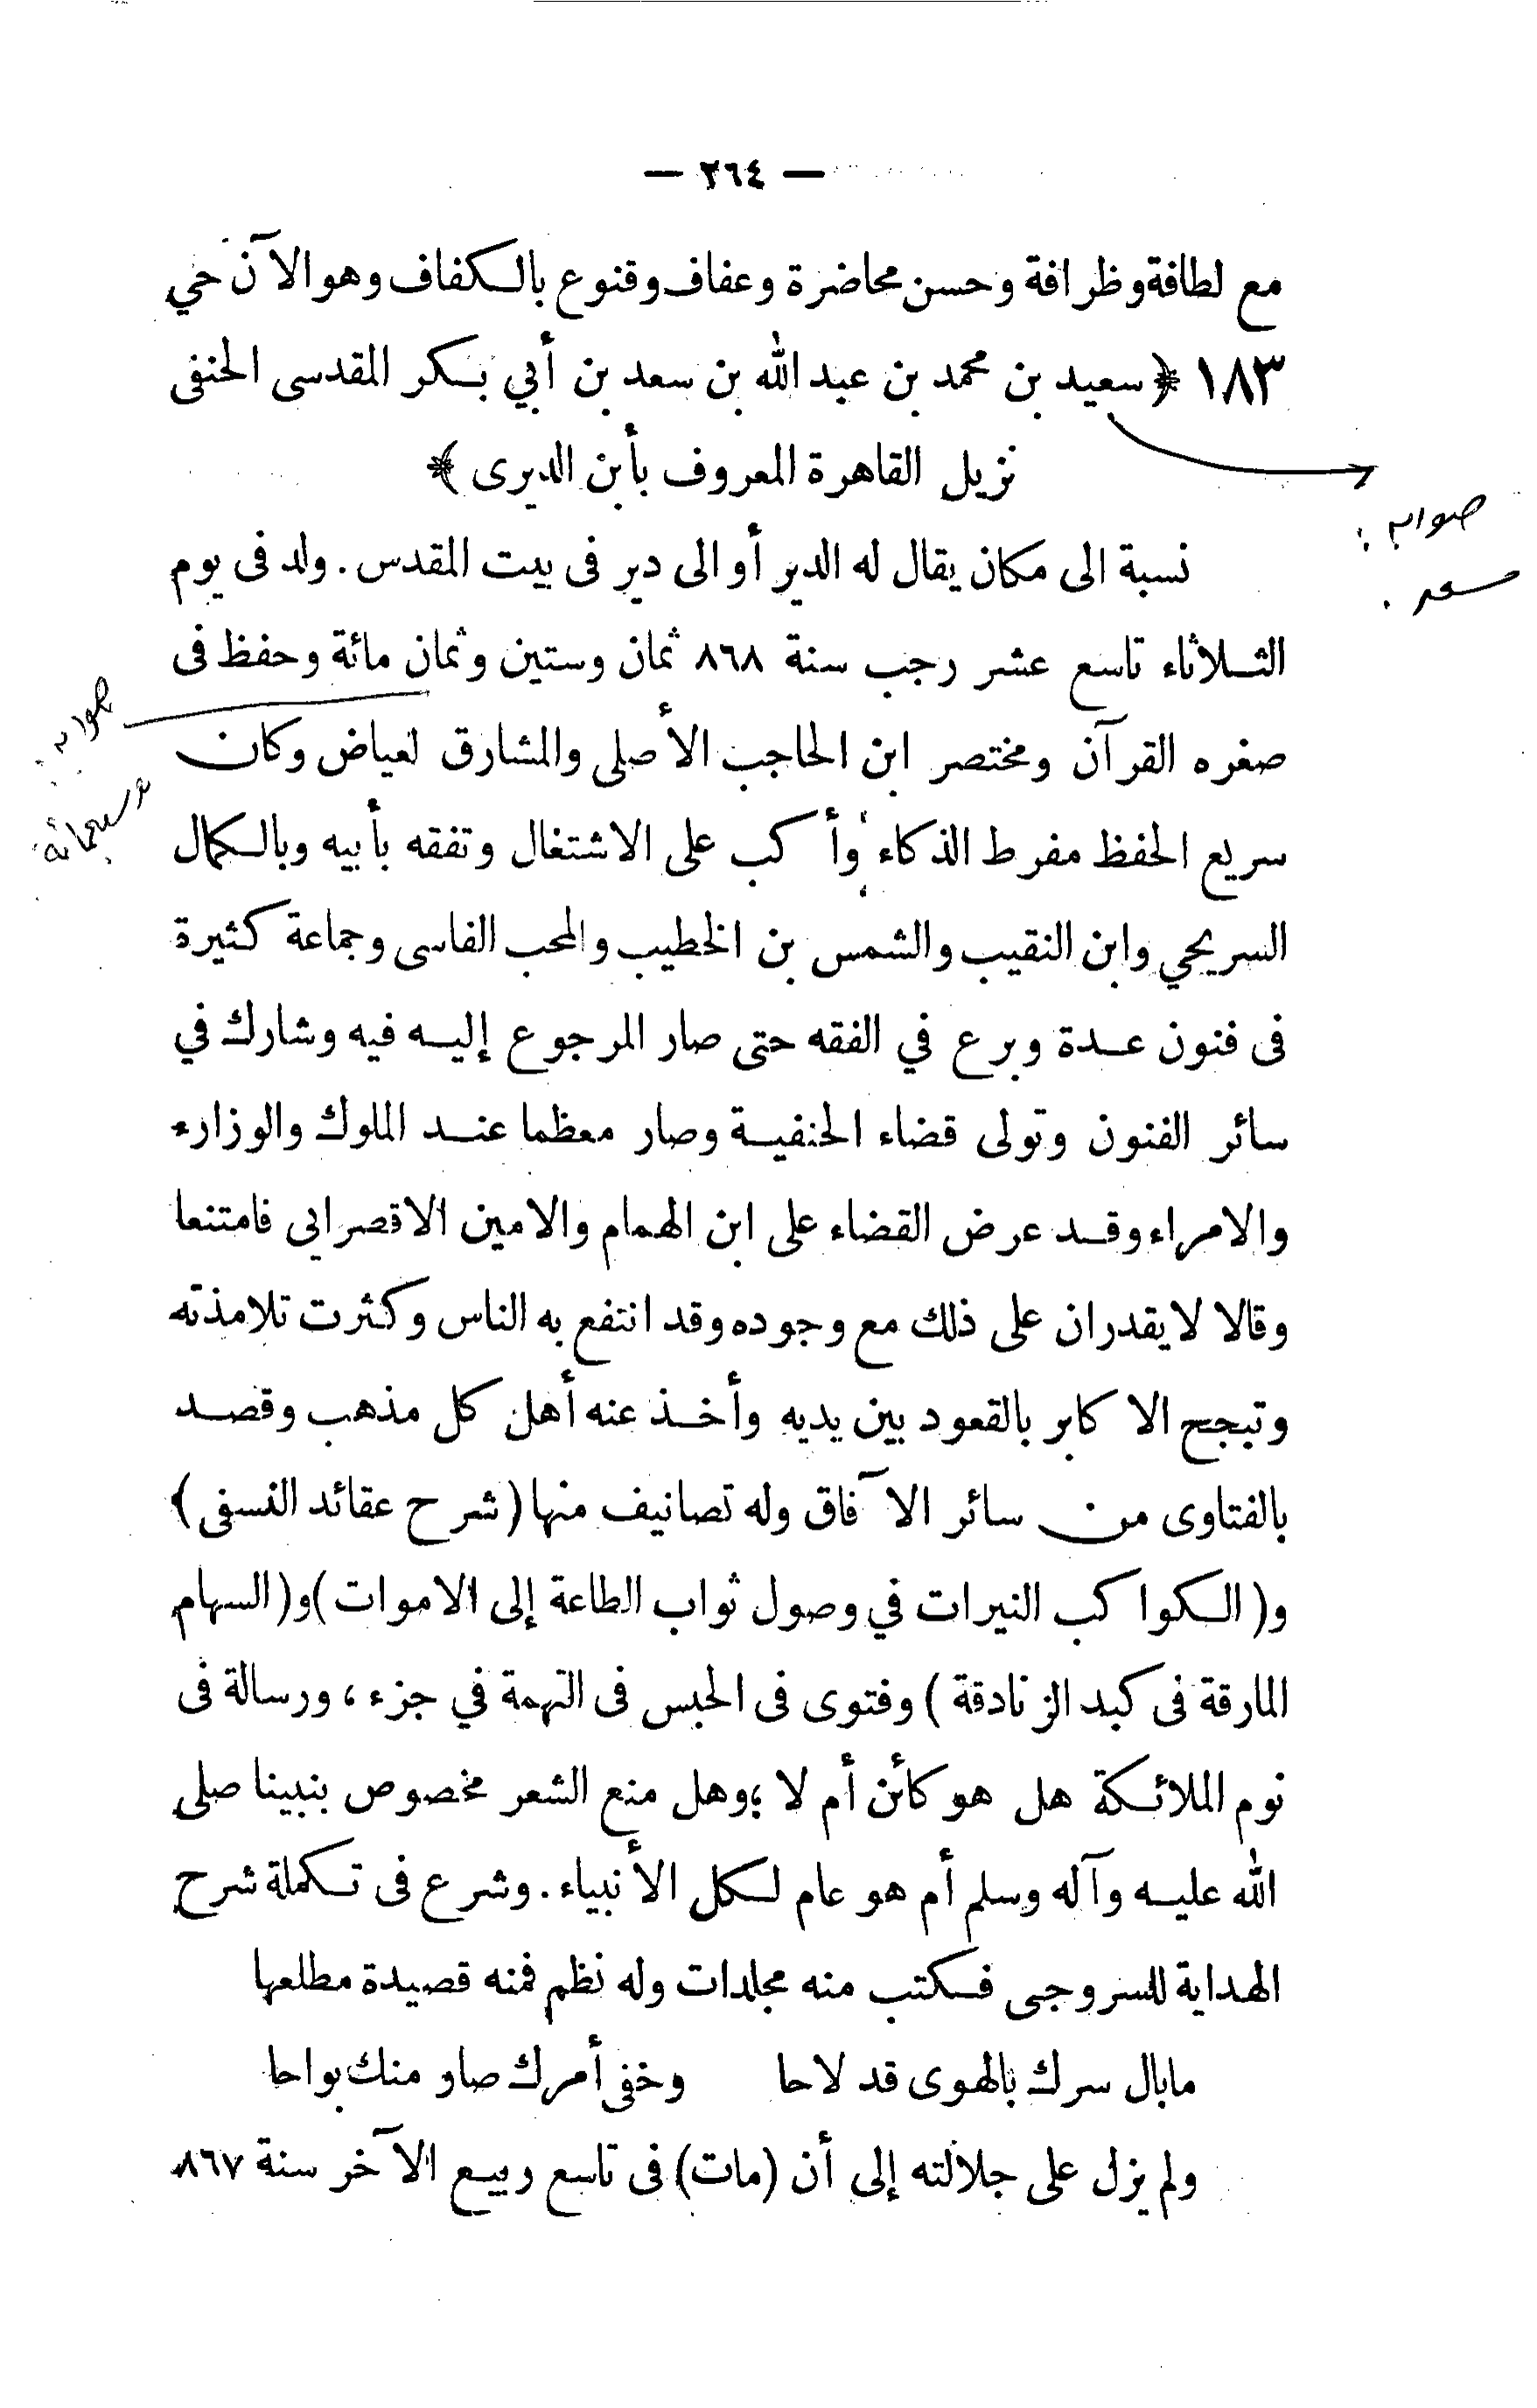 — ٢٦٤ —
مع لطافة وظرافة وحسن محاضرة وعفاف وقنوع بالكفاف وهو الآن حي
١٨٣ ﴿ سعيد بن محمد بن عبد الله بن سعد بن أبي بكر المقدسى الحنفى
نزيل القاهرة المعروف بأبن الديرى ﴾
صوابه :
سعد .
نسبة الى مكان يقال له الدير أو الى دير فى بيت المقدس . ولد فى يوم
الثلاثاء تاسع عشر رجب سنة ٨٦٨ ثمان وستين وثمان مائة وحفظ فى
صوابه :
وسبعمائة
صغره القرآن ومختصر ابن الحاجب الأصلى والمشارق لعياض وكان
سريع الحفظ مفرط الذكاء وأكب على الاشتغال وتفقه بأبيه وبالكمال
السريحي وابن النقيب والشمس بن الخطيب والمحب الفاسى وجماعة كثيرة
فى فنون عدة وبرع في الفقه حتى صار المرجوع إليه فيه وشارك في
سائر الفنون وتولى قضاء الحنفية وصار معظما عند الملوك والوزراء
والامراء وقد عرض القضاء على ابن الهمام والامين الاقصرابى فامتنعا
وقالا لا يقدران على ذلك مع وجوده وقد انتفع به الناس وكثرت تلامذته
وتبجح الاكابر بالقعود بين يديه وأخذ عنه أهل كل مذهب وقصد
بالفتاوى من سائر الآفاق وله تصانيف منها ( شرح عقائد النسفى )
و( الكواكب النيرات في وصول ثواب الطاعة إلى الاموات ) و( السهام
المارقة فى كبد الزنادقة ) وفتوى فى الحبس فى التهمة في جزء ، ورسالة فى
نوم الملائكة هل هو كأئن أم لا ؛ وهل منع الشعر مخصوص بنبينا صلى
الله عليه وآله وسلم أم هو عام لكل الأنبياء . وشرع فى تكملة شرح
الهداية للسروجى فكتب منه مجلدات وله نظم فمنه قصيدة مطلعها
مابال سرك بالهوى قد لاحا وخفى أمرك صاو منك بواحا
ولم يزل على جلالته إلى أن (مات) فى تاسع ربيع الآخر سنة ٨٦٧